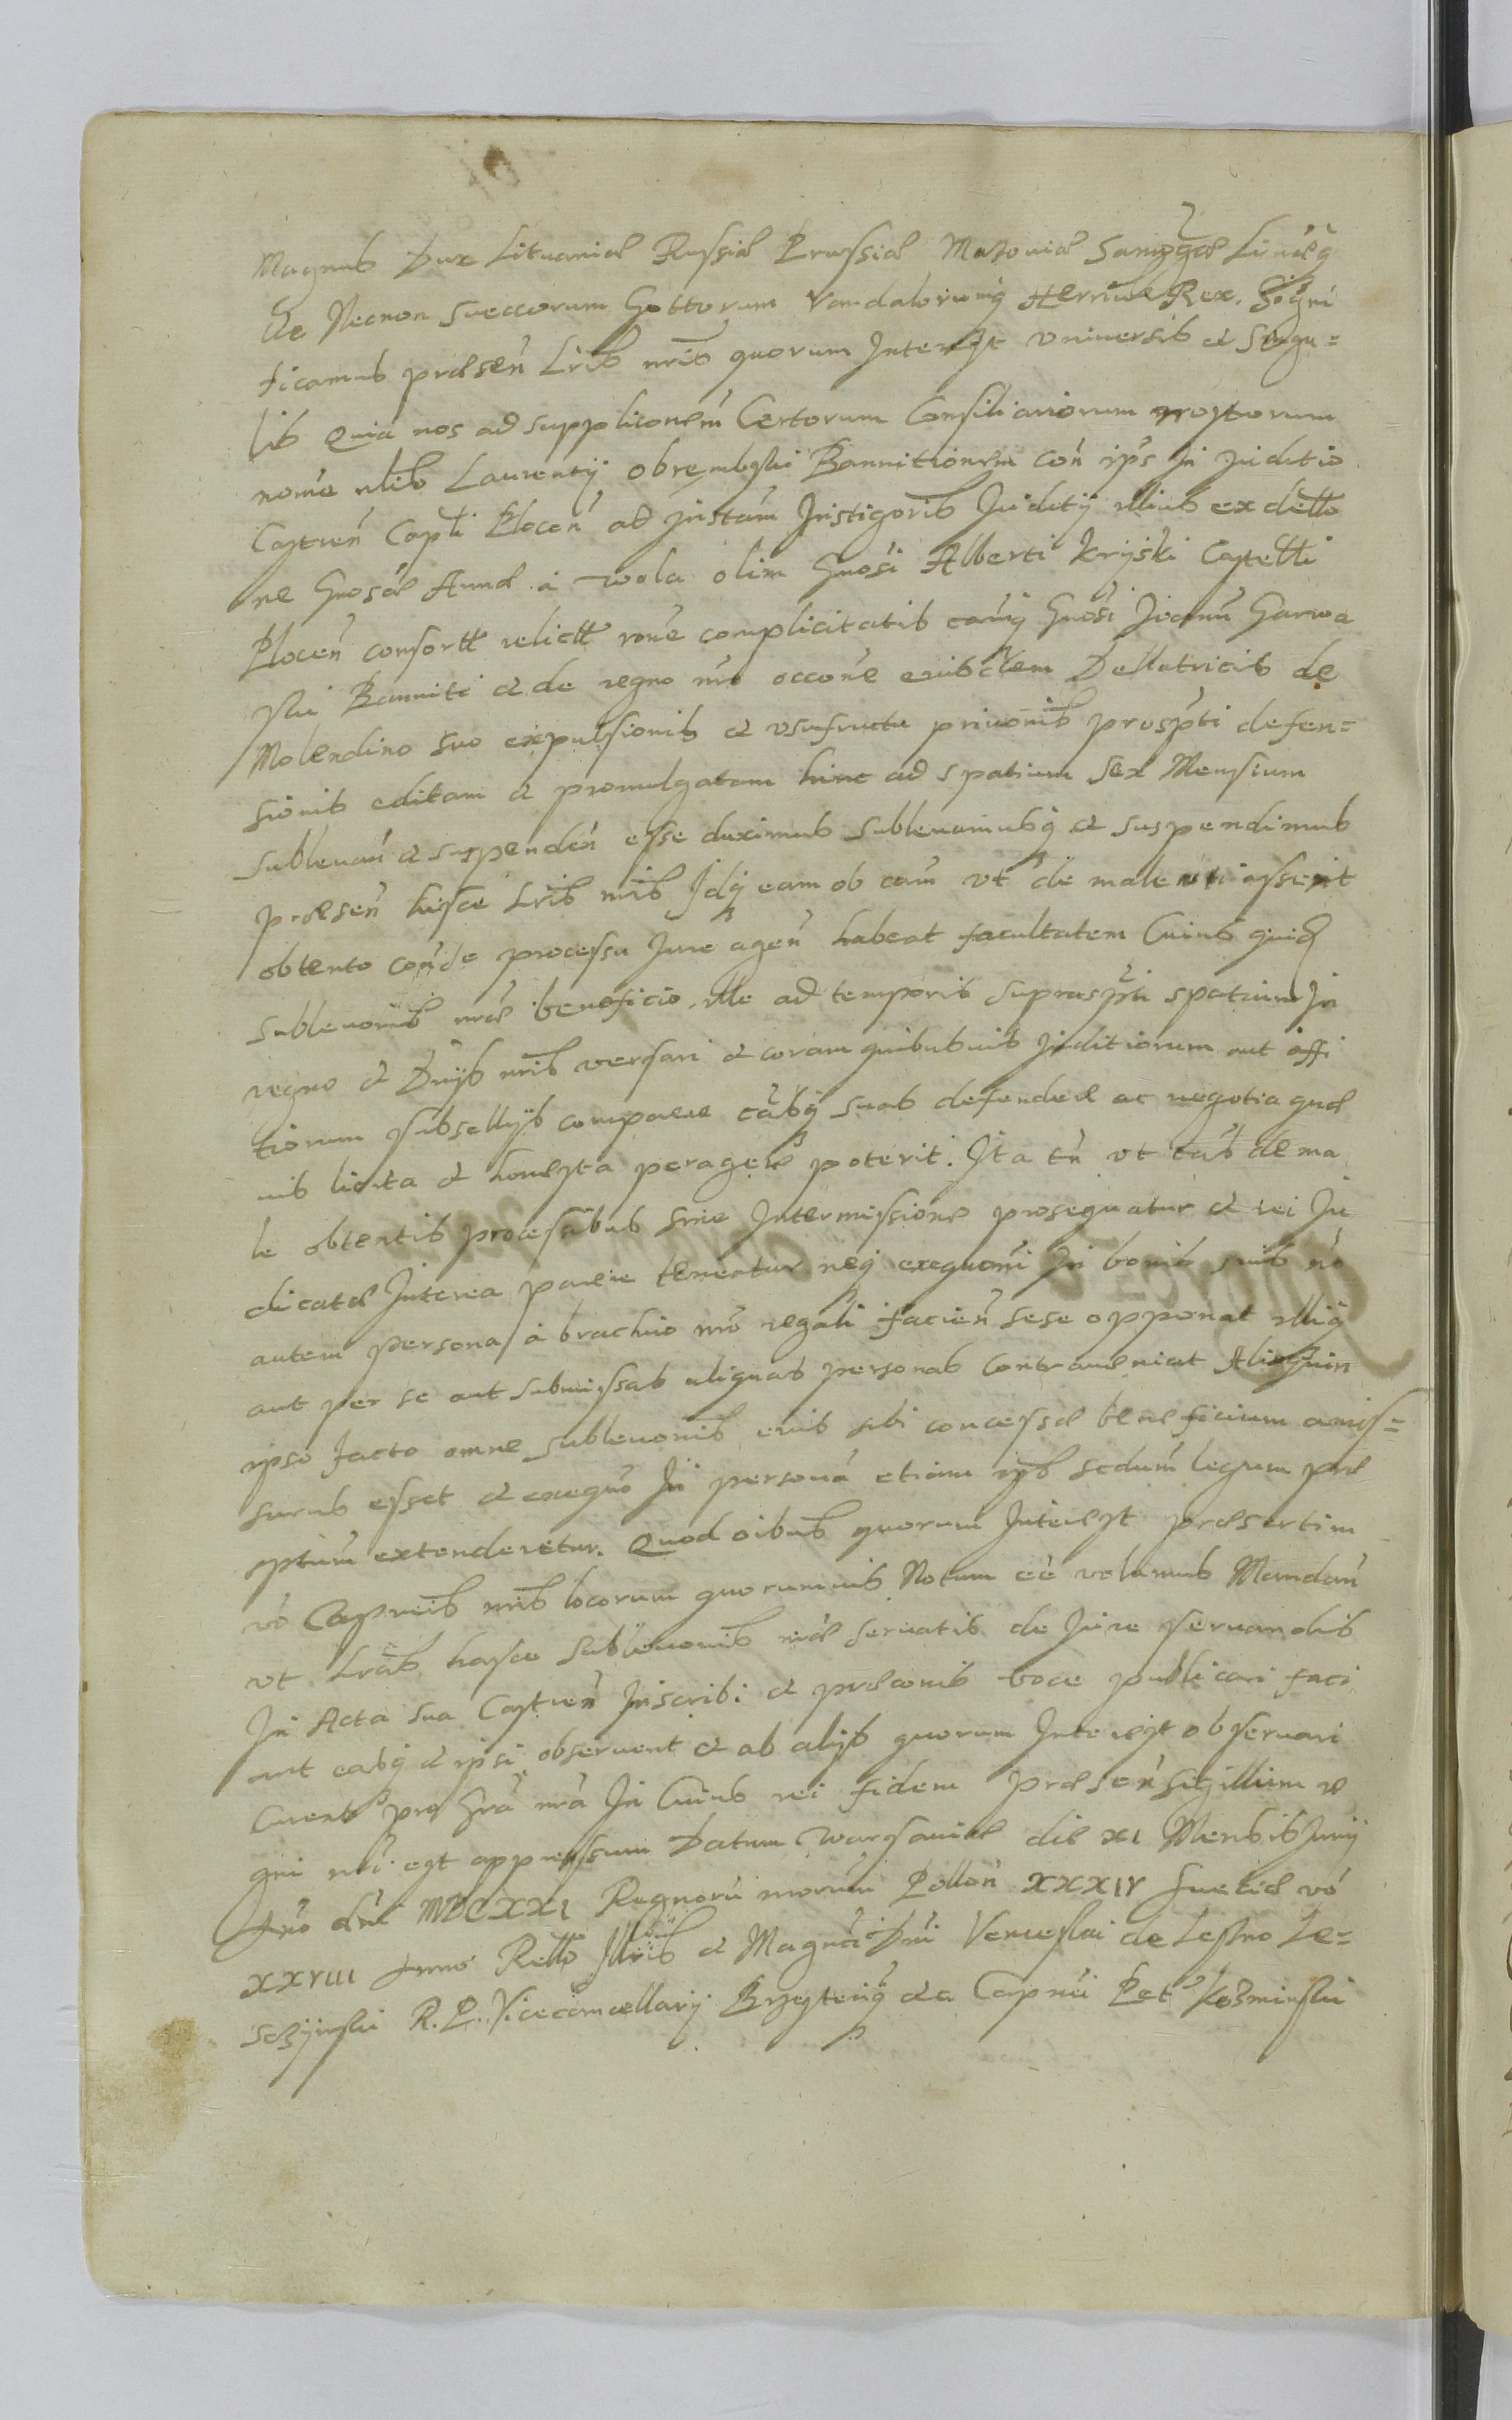 Magnus Dux Lituaniæ Russiæ Prussiæ Mazoviæ Samogæ Livæq
Ec Necnon Sueccorum Gottorum Vandalorumq Hærius Rex. Signi
ficamus præsen̄ Lrīs nrīs quorum Interest universis et singu=
lis Quia nos ad supplicon̄em Certorum Consiliariorum nostrorum
nom̄e nlīs Laurentij Obrembski Bannitionem con̄ ips̄ In juditio
Castren̄ Capli Plocen̄ ad jnstam̄ Jnstigoris̄ Juditij illius ex dello
ne Gnosæ Annæ à Wola olim Gnosi Alberti Kryski Castelli
Plocen̄ consortt relictt ron̄e complicitatis cauq Gnosi Joann̄ Garwa
ski Banniti et de regno nro̅ occon̄e eiusdem Dellatricis de
Molendino suo expulsionis et usufructu privon̄is prospti defen=
sionis editam et promulgatam hinc ad spatium sex Mensium
sublevan̄ et suspenden̄ esse duximus sublevamusq et suspendimus
præsen̄ hisce Lrīs nrīs Jdq eam ob cam̄ ut de male uti asserit
obtento con̄ se processu Jure agen̄ habeat facultatem Cuius quid
sublevon̄is nræ beneficio ille ad temporis suprasp̄ti spatium In
regno et Dn̄ijs nrīs versari et coram quibusuis juditiorum aut offi
tiorum subsellijs comparere cāsq suas defendere ac negotia quæ
uis licita et honesta peragere poterit. Ita tn̄ ut cās de ma
le obtentis processibus sine Intermissione prosequatur et rei Ju
dicatæ Interea parere teneatur neq exequoni In bonis suis nō
autem persona à brachio nrō regali facien̄ sese opponat illiq
aut per se aut submissas aliquas personas contraveniat Alioquin
ipso facto omne sublevon̄is eius sibi concessæ beneficium amis=
surus esset et exequō In personā etiam ips̄ sedum̄ legum præ
sptum̄ extenderetur. Quod oibus quorum Interest præsertim
vō Capneīs nrīs locorum quorumuis Notum eē volumus Mandan̄
ut Lrās hasce sublevon̄is nræ servatis de Jure servandis
In Acta sua Castren̄ Inscribi et præconis voce publicari faci
ant easq et ipsi observent et ab alijs quorum Interest observari
curent pro Grā nrā In Cuius rei fidem præsen̄ sigillum re
gni nrī est appressum Datum Warsaviæ die XI Mensis Junij
Anō dn̄i MDCXXI Regnorū nrorum̄ Pollon̄ XXXIV Sueciæ vō
XXVIII Anno Rello Illrīs et Magnci Dn̄i Venceslai de Lesno Le=
sczijnski R. P. Vicecancellarij Brzestenq etc Capnei Pet Kozminski